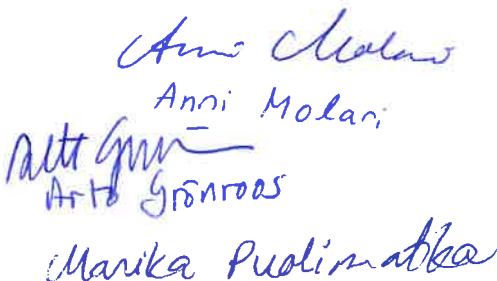 Anni Molari
Anni Molari
Arto Grönroos
Marika Puolimatka